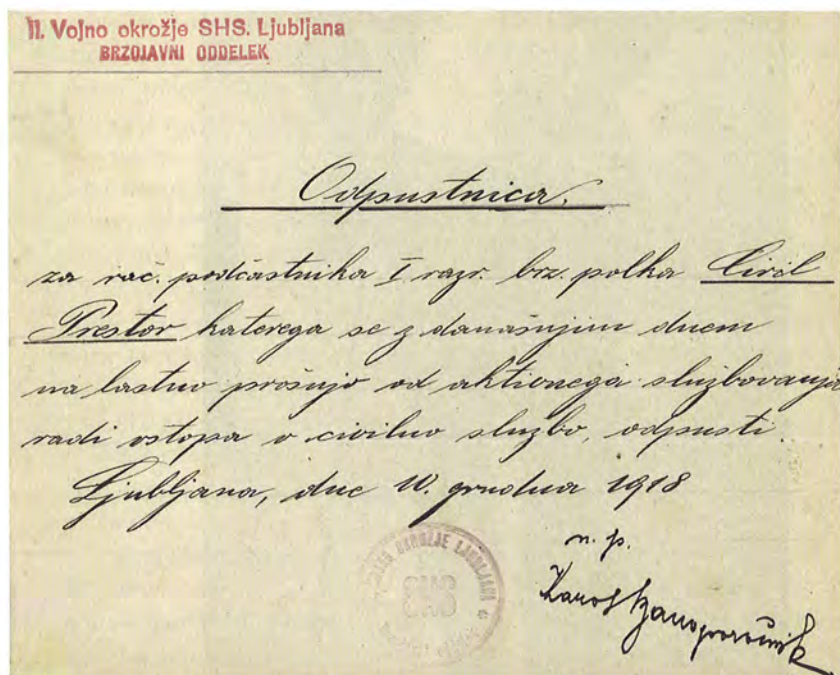 II. Vojno okrožje SHS. Ljubljana
BRZOJAVNI ODDELEK
Odpustnica.
za rač. podčastnika I razr. brz. polka Ciril
Prestor katerega se z današnjim dnem
na lastno prošnjo od aktivnega službovanja
radi vstopa v civilno službo, odpusti.
Ljubljana, dne 10. grudna 1918
n. p.
OKROŽJE LJUBLJANA
SHS
Karol